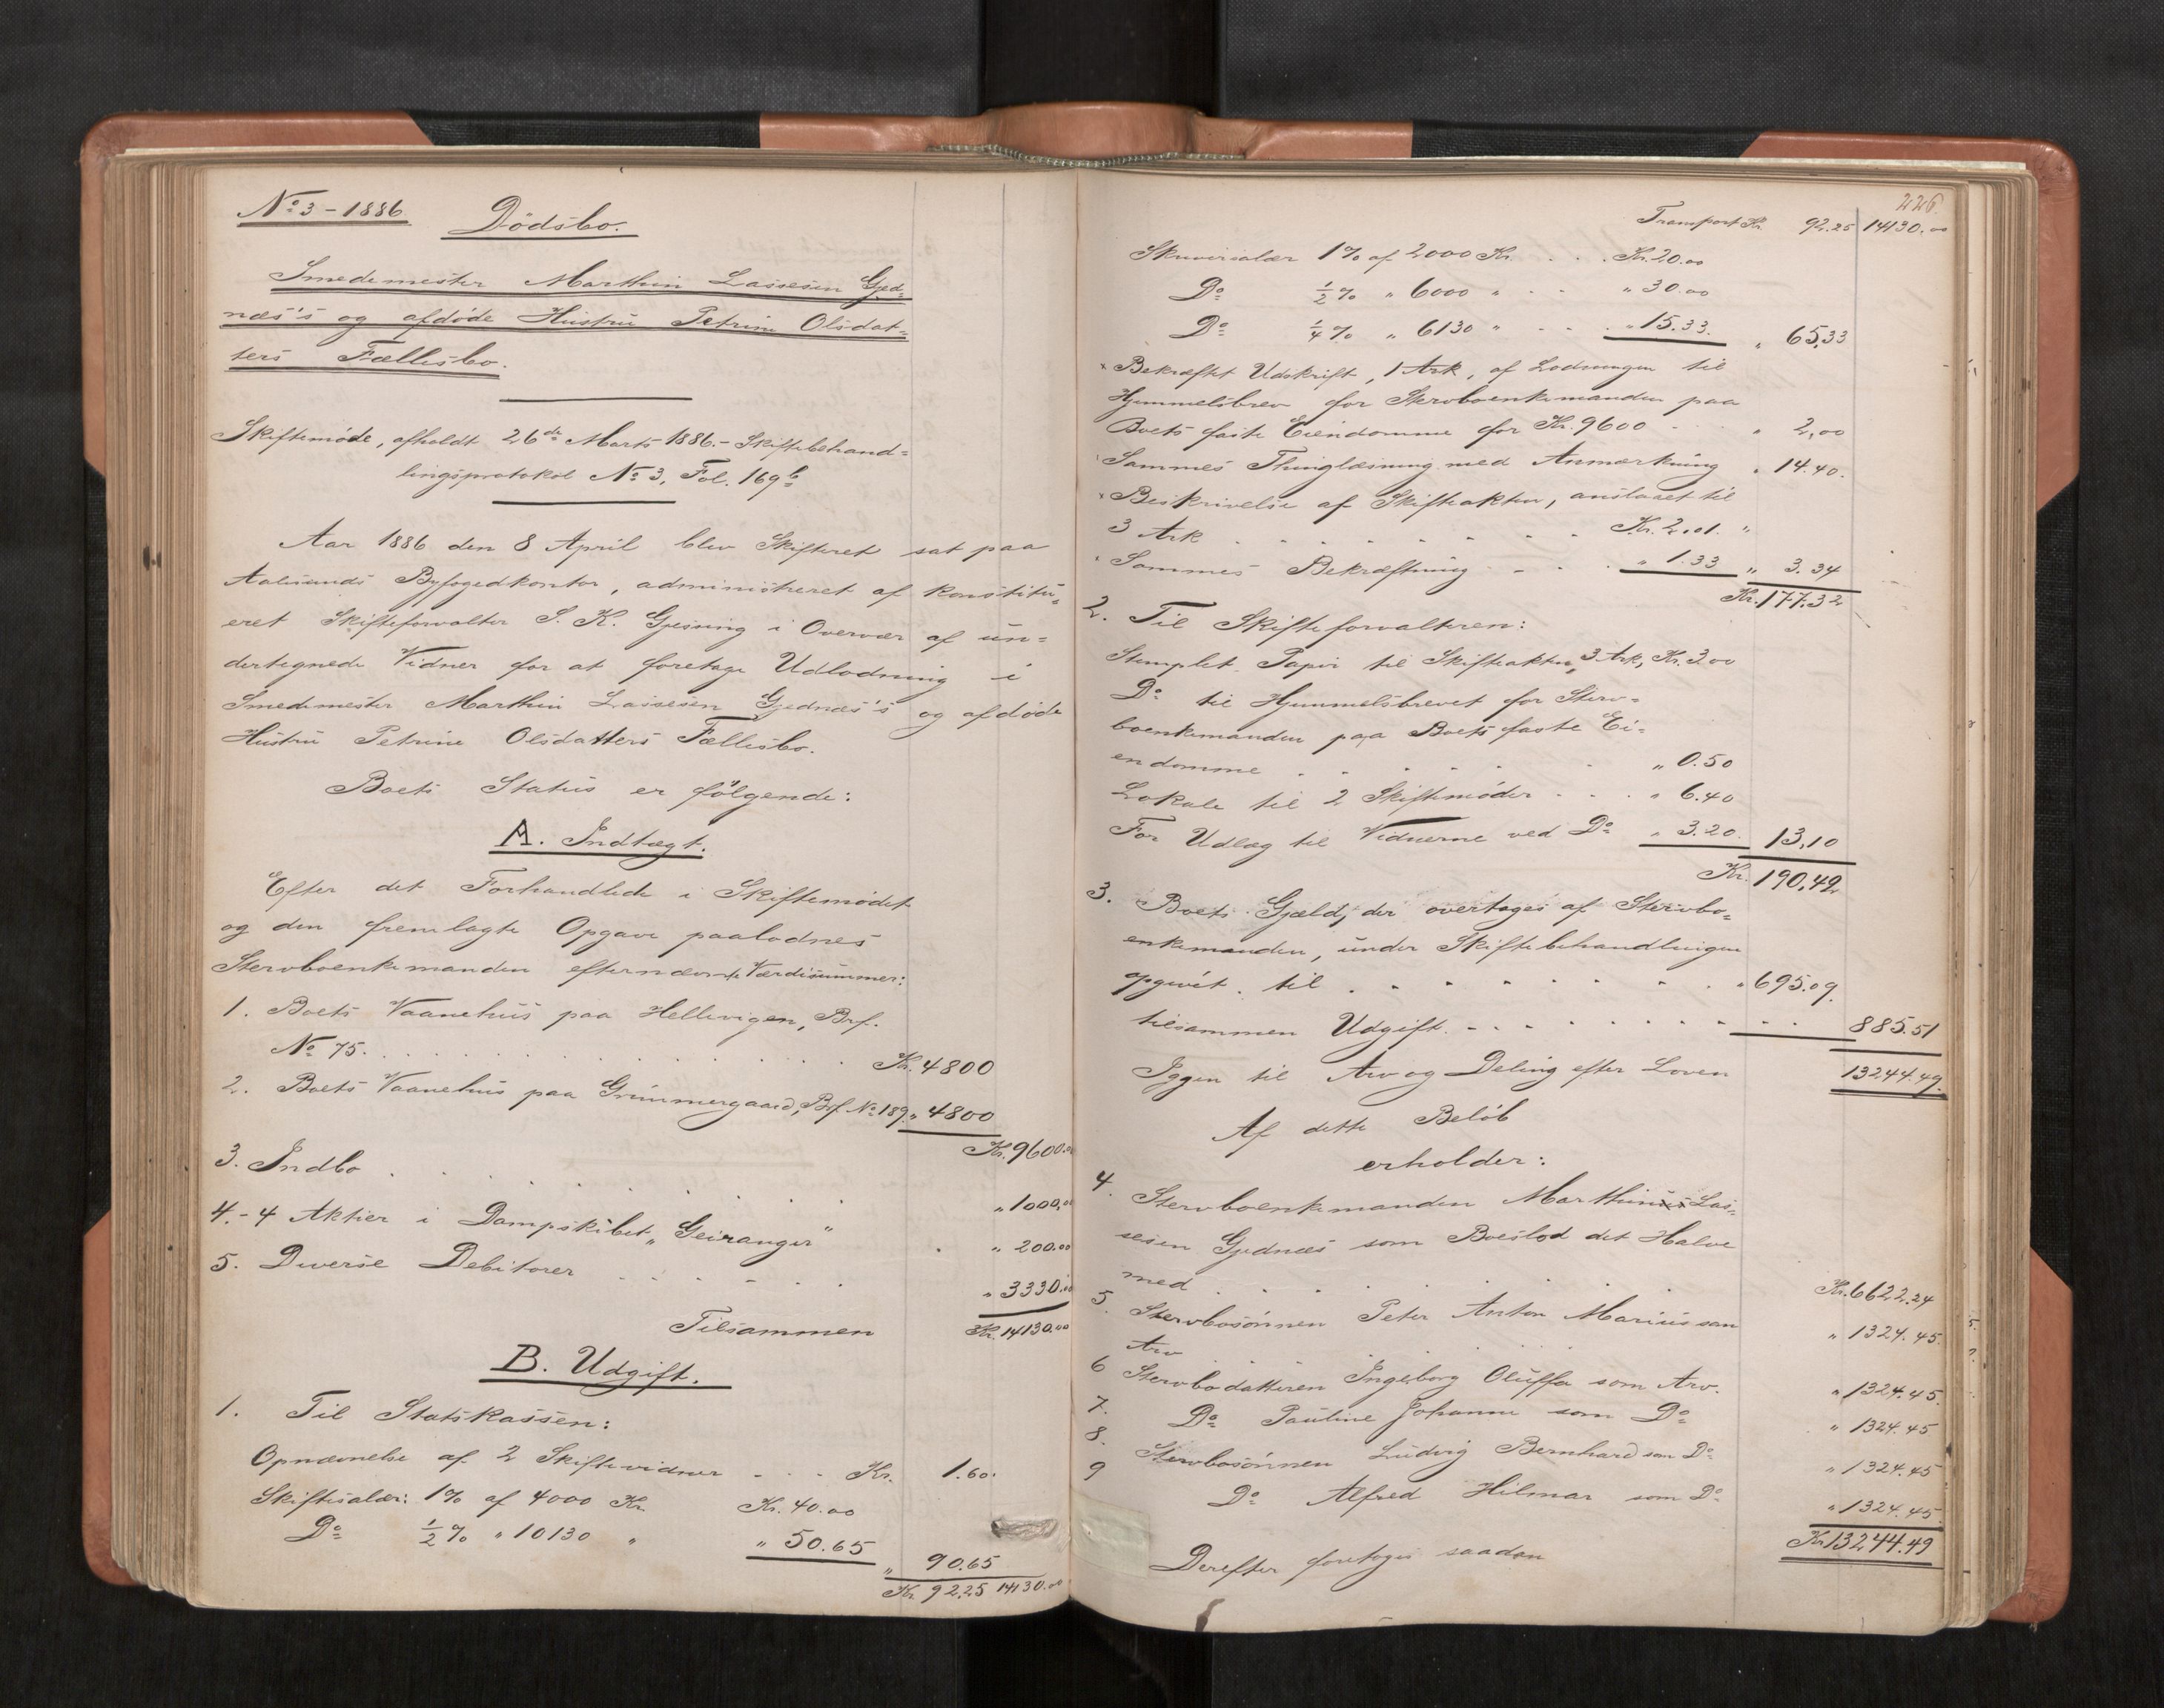 No 3 - 1886.
Dödsbo.
Smedemester Marthin Lassesen Gjed-
næs's og afdöde Hustru Petrine Olsdat-
ters Fællesbo.
Skiftemöde, afholdt 26de Marts 1886. - Skiftebehand-
lingsprotokol No 3, Fol. 169b
Aar 1886 den 8 April blev Skifteret sat paa
Aalesunds Byfogedkontor, administreret af konstitu-
eret Skifteforvalter S. K. Gjessing i Overvær af un-
dertegnede Vidner for at foretage Udlodning i
Smedemester Marthin Lassesen Gjednæs's og afdöde
Hustru Petrine Olsdatters Fællesbo.
Boets Status er fölgende:
A. Indtægt.
Efter det Forhandlede i Skiftemödet
og den fremlagte Opgave paalodnes
Stervboenkemanden efternævnte Værdisummer:
1. Boets Vaanehus paa Hellevigen, Brf.
No 75. Kr. 4800
2. Boets Vaanehus paa Grimmergaard, Brf. No 189. " 4800
Kr. 9600.00
3. Indbo " 1000,00
4. - 4 Aktier i Dampskibet "Geiranger" " 200.00
5. Diverse Debitorer " 3330.00
Tilsammen Kr. 14130.00
B. Udgift.
1. Til Statskassen:
Opnævnelse af 2 Skiftevidner Kr. 1.60.
Skiftesalær: 1% af 4000 Kr. Kr. 40.00
Do ½% " 10130 " " 50.65 " 90.65
Kr. 92.25 14130.00
226.
Transport Kr. 92.25 14130.00
Skriversalær 1% af 2000 Kr. Kr. 20.00
Do ½% " 6000 " " 30.00
Do ¼% " 6130 " " 15.33. " 65,33
x Bekræftet Udskrift, 1 Ark, af Lodningen til
Hjemmelsbrev for Stervboenkemanden paa
Boets faste Eiendomme for Kr. 9600 " 2,00
Sammes Thinglæsning med Anmærkning " 14.40.
x Beskrivelse af Skifteakten, anslaaet til
3 Ark Kr. 2.01. "
Sammes Bekræftning " 1.33 " 3.34
Kr. 177.32
2. Til Skifteforvalteren:
Stemplet Papir til Skifteakten, 3 Ark, Kr. 3.00
Do til Hjemmelsbrevet for Sterv-
boenkemanden paa Boets faste Ei-
endomme " 0.50
Lokale til 2 Skiftemöder " 6.40
For Udlæg til Vidnerne ved Do " 3.20. 13,10
Kr. 190,42
3. Boets Gjæld, der overtages af Stervbo-
enkemanden, under Skiftebehandlingen
opgivet til " 695.09.
tilsammen Udgift. 885.51
Igjen til Arv og Deling efter Loven 13244.49.
Af dette Belöb
erholder:
4. Stervboenkemanden Marthin Las-
sesen Gjednæs som Boeslod det Halve
med Kr. 6622.24
5. Stervbosönnen Peter Anton Marius som
Arv " 1324.45.
6 Stervbodatteren Ingeborg Oluffa som Arv. " 1324.45.
7. Do Pauline Johanne som Do " 1324.45
8. Stervbosönnen Ludvig Bernhard som Do " 1324.45
9 Do Alfred Hilmar som Do " 1324.45.
Kr. 13244.49
Derefter foretoges saadan